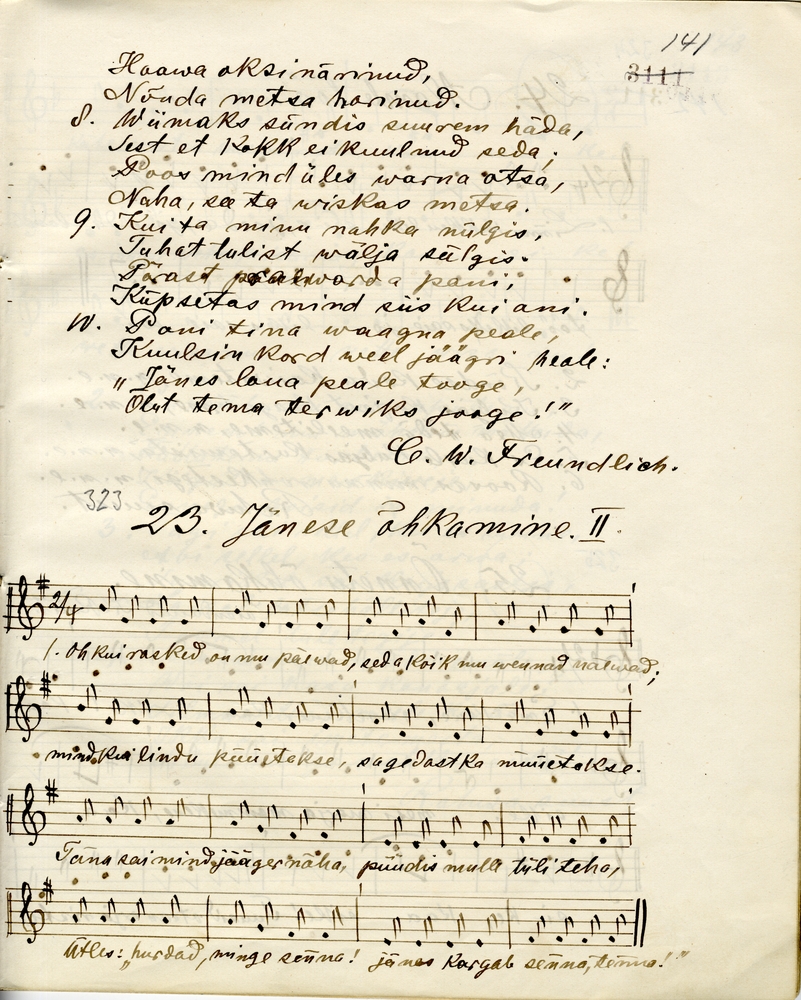 141
3111
Haawa oksi närinud,
Nõnda metsa harinud.
8. Wiimaks sündis suurem häda,
Sest et Kokk ei kuulnud seda;
Poos mind üles warna otsa,
Naha, sæ ta wiskas metsa.
9. Kui ta minu nahka nülgis,
Tuhat tulist wälja sülgis.
Pärast praewarda pani,
Küpsetas mind siis kui ani.
10. Pani tina waagna peale,
Kuulsin kord weel jäägri heale:
"Jänes laua peale tooge,
Olut tema terwiks jooge!"
C. W. Freundlich.
323
23. Jänese õhkamine. II.
2/4
1. Oh kui rasked on mu päewad, seda kõik mu wennad naewad;
mind kui lindu püütakse, sagedast ka müüetakse.
Täna sai mind jääger näha, püüdis mulle tüli teha,
Ütles: "hurdad, minge senna! jänes kargab senna, tenna!"